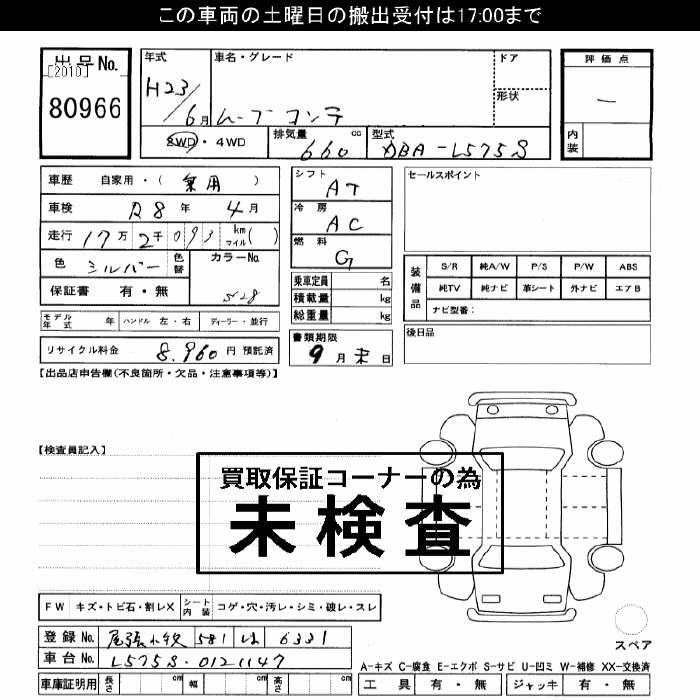 この車両の土曜日の搬出受付は17:00まで
出品No.
[2010]
80966
年式
H23/6月
車名・グレード
ムーブコンテ
ドア
形状
評価点
―
内装
2WD・4WD
排気量 660 cc
型式 DBA-L575S
車歴 自家用・(乗用)
車検 R8年 4月
走行 17万2千093 km マイル( )
色 シルバー
色替
カラーNo.
S28
保証書 有・無
シフト AT
冷房 AC
燃料 G
乗車定員 名
積載量 kg
総重量 kg
書類期限
9月末日
セールスポイント
装備品
S/R 純A/W P/S P/W ABS
純TV 純ナビ 革シート 外ナビ エアB
ナビ型番:
後日品
モデル年式 年 ハンドル 左・右 ディーラー・並行
リサイクル料金 8,960 円 預託済
【出品店申告欄(不良箇所・欠品・注意事項等)】
【検査員記入】
買取保証コーナーの為
未検査
FW キズ・トビ石・割レX
シート内装 コゲ・穴・汚レ・シミ・破レ・スレ
登録No. 尾張小牧 581 は 6331
車台No. L575S-0121147
車庫証明用 長さ cm 幅 cm 高さ cm
スペア
A-キズ C-腐食 E-エクボ S-サビ U-凹ミ W-補修 XX-交換済
工具 有・無 ジャッキ 有・無